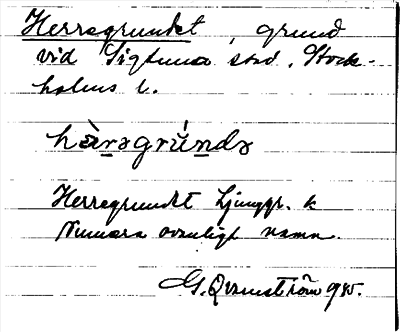 Herregrundet, grund
vid Sigtuna stad, Stock-
holms l.
hàragrúndə
Herregrundet Ljunggr. k
Numera ovanligt namn.
G. Qvarnström 9